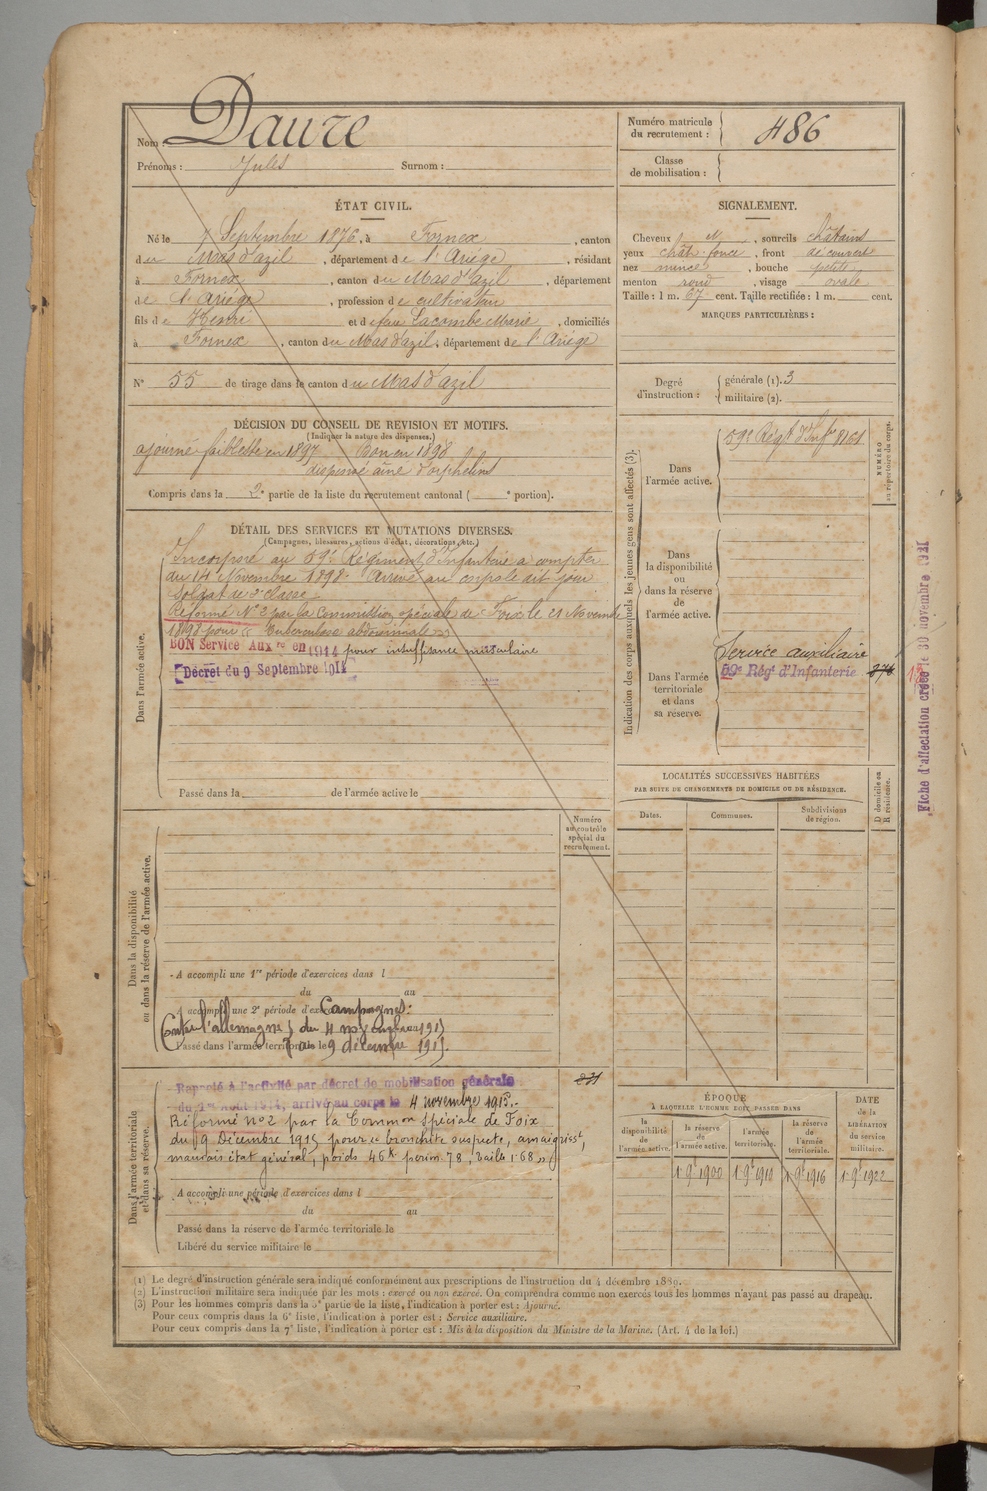 Nom : Daure
Prénoms : Jules Surnom :
Numéro matricule du recrutement : 486
Classe de mobilisation :
ÉTAT CIVIL.
Né le 7 Septembre 1876, à Fornex, canton
du Mas d'azil, département de l'Ariège, résidant
à Fornex, canton du Mas d'azil, département
de l'Ariége, profession de cultivateur
fils de Henri et de feue Lacombe Marie, domiciliés
à Fornex, canton du Mas d'azil, département de l'Ariège
N° 55 de tirage dans le canton du Mas d'azil
SIGNALEMENT.
Cheveux N, sourcils châtains
yeux chât. foncé, front découvert
nez mince, bouche petite
menton rond, visage ovale
Taille : 1 m. 67 cent. Taille rectifiée : 1 m. cent.
MARQUES PARTICULIÈRES :
Degré d'instruction : générale (1). 3
militaire (2).
DÉCISION DU CONSEIL DE RÉVISION ET MOTIFS.
(Indiquer la nature des dispenses.)
ajourné faiblesse en 1897 Bon en 1898
dispensé aîné d'orphelins
Compris dans la 2e partie de la liste du recrutement cantonal ( e portion).
DÉTAIL DES SERVICES ET MUTATIONS DIVERSES.
(Campagnes, blessures, actions d'éclat, décorations, etc.)
Dans l'armée active.
Incorporé au 59e Régiment d'Infanterie à compter
du 14 Novembre 1898. Arrivé au corps le dit jour
Soldat de 2e classe
Réformé N° 2 par la Commission spéciale de Foix le 21 Novembre
1898 pour "Tuberculose abdominale"
BON Service Auxre en 1914 pour insuffisance musculaire
Décret du 9 Septembre 1914
Passé dans la de l'armée active le
Indication des corps auxquels les jeunes gens sont affectés (3).
Dans l'armée active.
59e Régt d'Infie
NUMÉRO au répertoire du corps.
Dans la disponibilité ou dans la réserve de l'armée active.
Dans l'armée territoriale et dans sa réserve.
Service auxiliaire
59e Régt d'Infanterie
Fiche d'affectation créée le 30 Novembre 1931
LOCALITÉS SUCCESSIVES HABITÉES
PAR SUITE DE CHANGEMENTS DE DOMICILE OU DE RÉSIDENCE.
Dates. Communes. Subdivisions de région. D domicile ou R résidence.
Dans la disponibilité ou dans la réserve de l'armée active.
Numéro au contrôle spécial du recrutement.
A accompli une 1re période d'exercices dans l
du au
A accompli une 2e période d'exercices Campagnes:
Contre l'allemagne du 4 novembre 1915
Passé dans l'armée territoriale le au 9 décembre 1915.
Dans l'armée territoriale et dans sa réserve.
Rappelé à l'activité par décret de mobilisation générale
du 1er Août 1914, arrivé au corps le 4 novembre 1915.
Réformé n°2 par la Common spéciale de Foix
du 9 Décembre 1915 pour "bronchite suspecte, amaigrisst,
mauvais état général, poids 46k perim. 78, taille 1.68"
A accompli une période d'exercices dans l
du au
Passé dans la réserve de l'armée territoriale le
Libéré du service militaire le
ÉPOQUE
À LAQUELLE L'HOMME DOIT PASSER DANS
la disponibilité de l'armée active. la réserve de l'armée active. l'armée territoriale. la réserve de l'armée territoriale.
DATE de la LIBÉRATION du service militaire.
1 9e 1900 1 9e 1910 1 9e 1916 1 9e 1922
(1) Le degré d'instruction générale sera indiqué conformément aux prescriptions de l'instruction du 4 décembre 1889.
(2) L'instruction militaire sera indiquée par les mots : exercé ou non exercé. On comprendra comme non exercés tous les hommes n'ayant pas passé au drapeau.
(3) Pour les hommes compris dans la 5e partie de la liste, l'indication à porter est : Ajourné.
Pour ceux compris dans la 6e liste, l'indication à porter est : Service auxiliaire.
Pour ceux compris dans la 7e liste, l'indication à porter est : Mis à la disposition du Ministre de la Marine. (Art. 4 de la loi.)